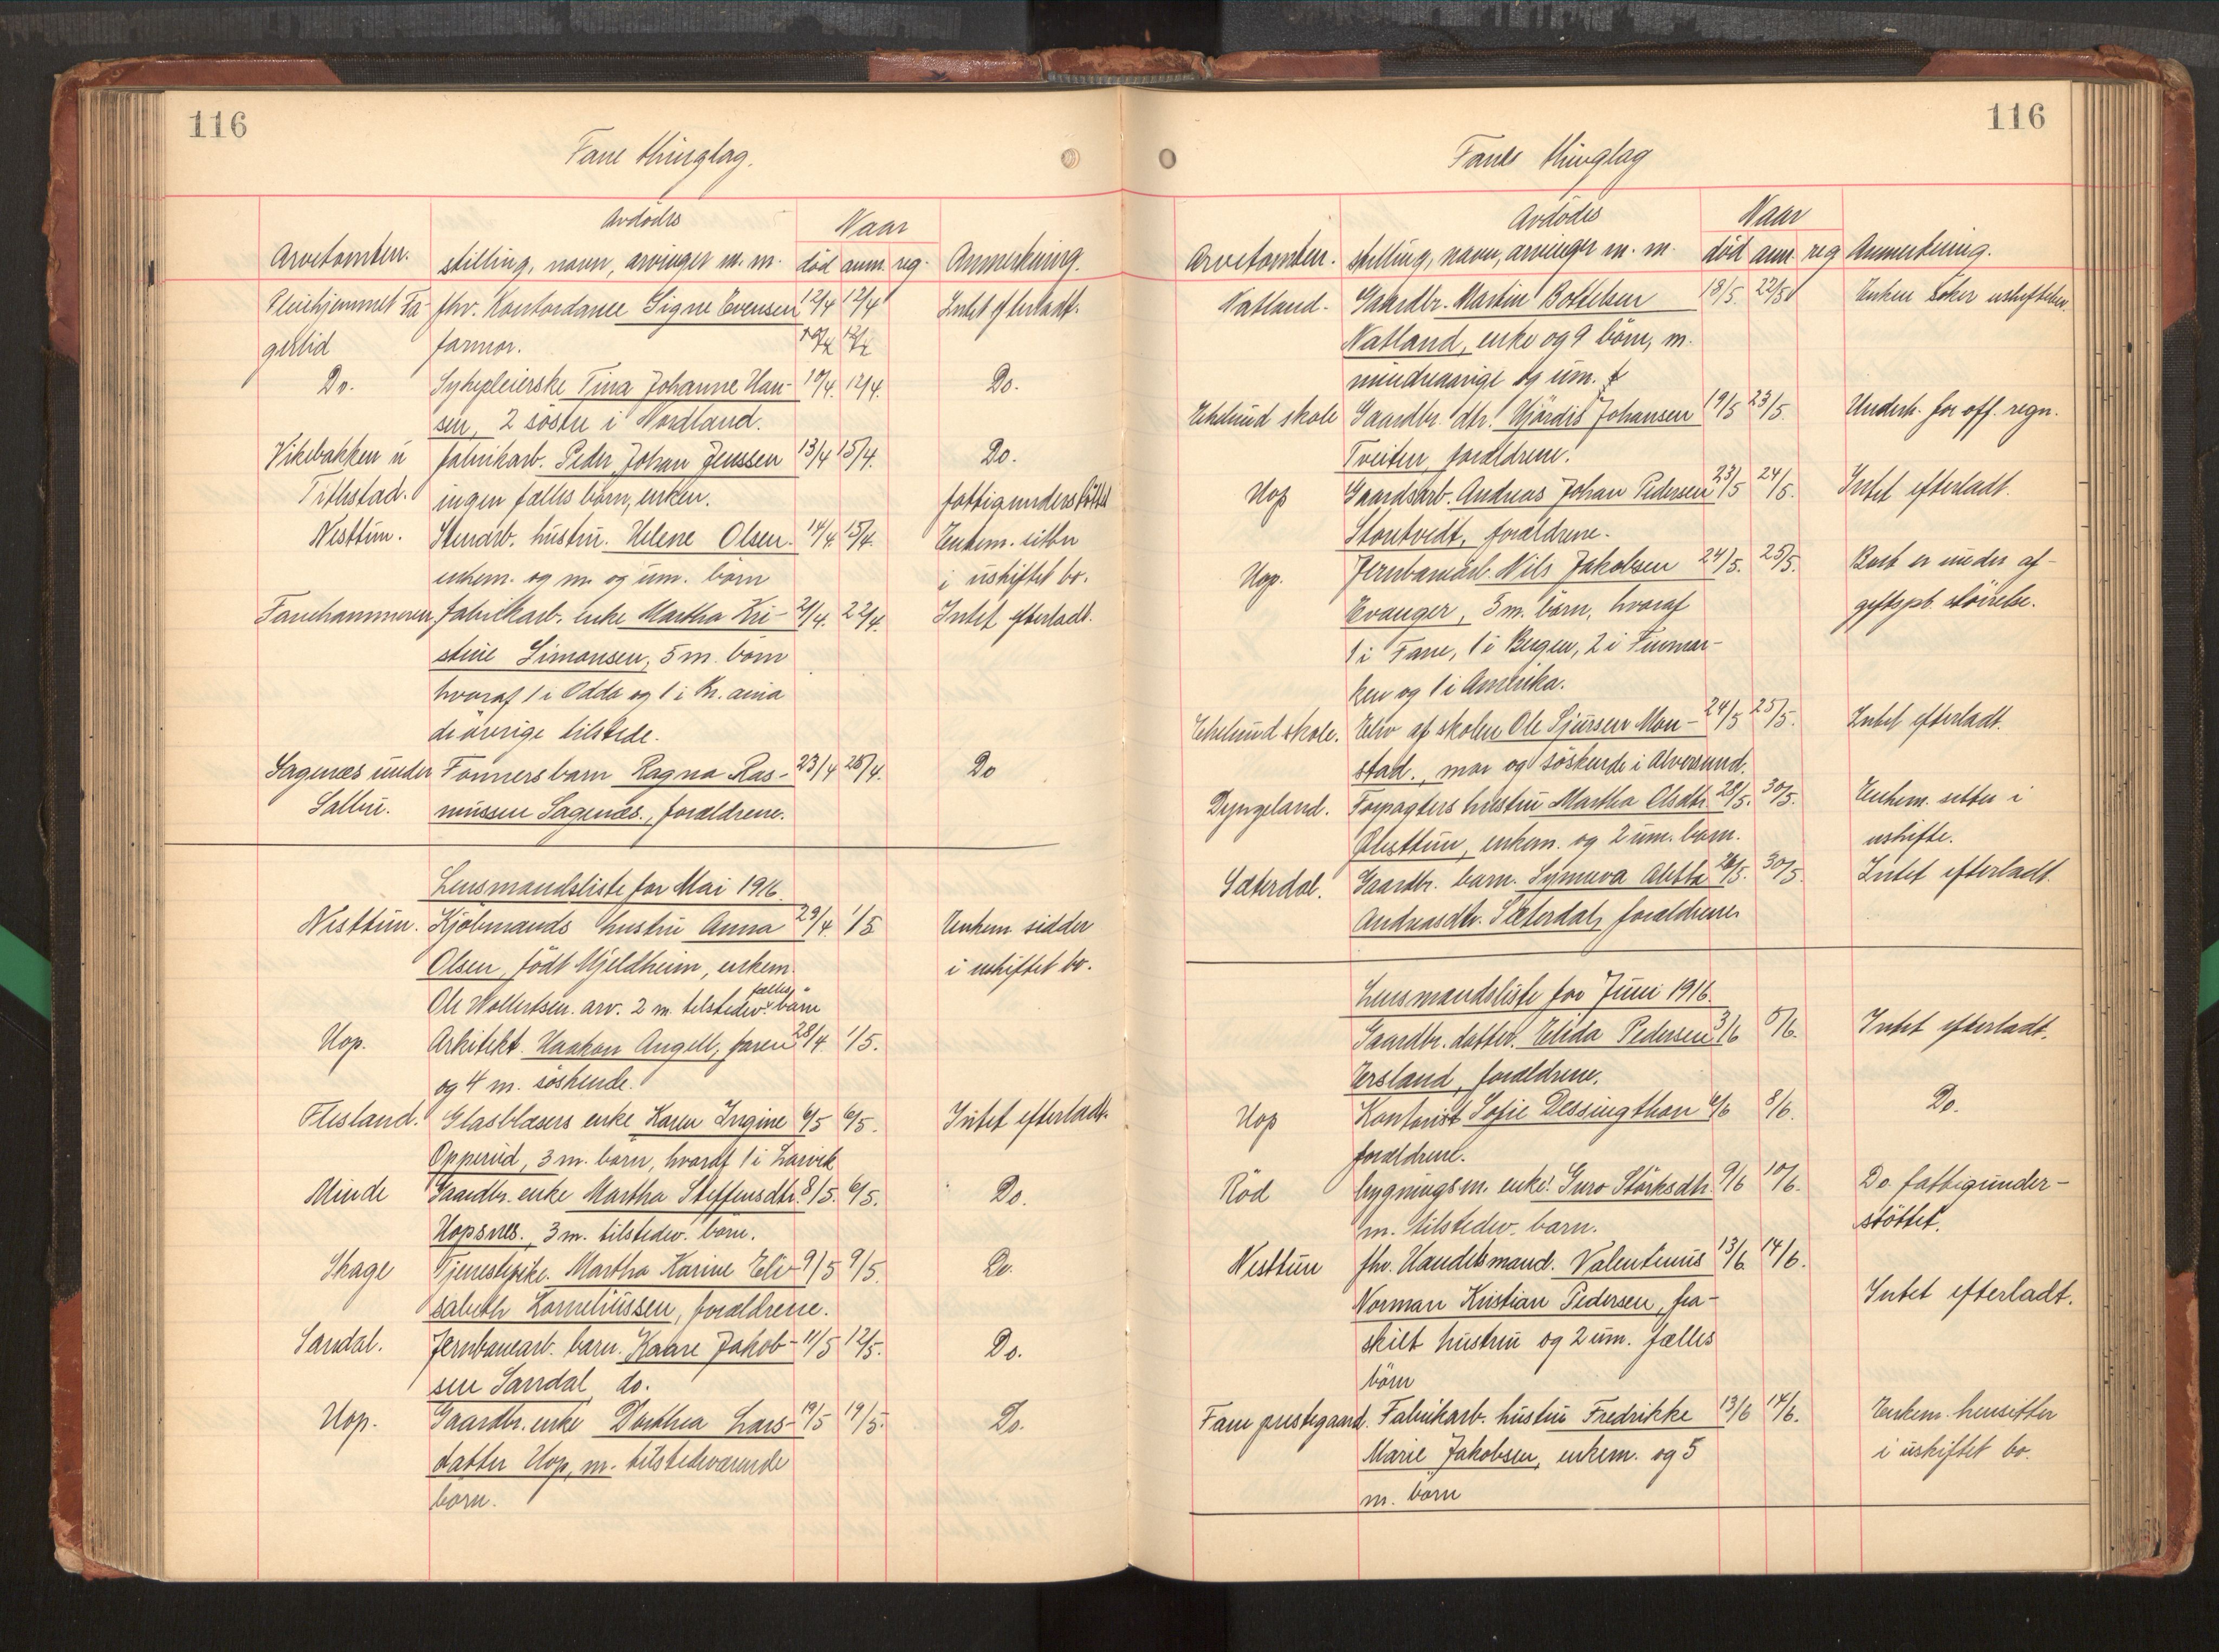 116
Fane thinglag.
Arvetomten.
Avdødes
stilling, navn, arvinger m. m.
Naar
død anm. reg.
Anmerkning.
Pleiehjemmet Fa- fhv. Kontordame Signe Evensen 12/4 12/4 Intet efterladt.
gerlid farmor.
Do. Sykepleierske Tina Johanne Han- 10/4. 12/4. Do.
sen, 2 søstre i Nordland.
Vikebakken u fabrikarb. Peder Johan Jenssen 13/4 15/4. Do.
Titlestad. ingen fælles børn, enken. fattigunderstøttet
Nesttun. Stenarb. hustru. Helene Olsen. 14/4 15/4. Enkem. sitter
enkem. og m. og um. børn i uskiftet bo.
Fanehammeren fabrikarb. enke Martha Kri- 21/4. 22/4. Intet efterladt.
stine Simonsen, 5 m. børn
hvoraf 1 i Odda og 1 i Kr.ania
de øvrige tilstede.
Sagenes under Formersbarn Ragna Ras- 23/4 25/4. Do
Sælen. mussen Sagenes., forældrene.
Lensmandsliste for Mai 1916.
Nesttun. Kjøbmands hustru Anna 29/4. 1/5 Enkem sidder
Olsen, født Mjeldheim, enkem. i uskiftet bo.
fælles
Ole Wollertsen. arv. 2 m. tilstedev. børn
Hop. Arkitekt. Haakon Angell, faren 28/4. 1/5.
og 4 m. søskende.
Flesland. Glasblæsers enke Karen Ingine 6/5 6/5. Intet efterladt.
Opperud, 3 m. børn, hvoraf 1 i Larvik
Minde Gaardbr. enke Martha Steffensdtr. 8/5. 6/5. Do.
Hopsnes., 3 m. tilstedev. børn.
Skage Tjenestepike. Martha Karine Eli- 9/5 9/5. Do.
sabeth Korneliussen, forældrene.
Sandal. Jernbanearb. barn. Kaare Jakob- 11/5 12/5. Do.
sen Sandal, do.
Hop. Gaardbr. enke Dorthea Lars- 19/5 19/5. Do.
datter Hop, m. tilstedeværende
børn.
116
Fane thinglag
Arvetomten.
Avdødes
stilling, navn, arvinger m. m.
Naar
død anm. reg
Anmerkning.
Natland. Gaardbr. Martin Bottelsen 18/5. 22/5 Enken søker uskiftebev.
Natland, enke og 9 børn, m.
mindreaarige og um.
Ekelund skole Gaardbr. dtr. Hjørdis Johansen 19/5 23/5. Underh. for off. regn.
Tveiten, forældrene.
Hop Gaardsarb. Andreas Johan Pedersen 23/5 24/5. Intet efterladt.
Storetvedt, forældrene.
Hop. Jernbanearb. Nils Jakobsen 24/5. 25/5. Boet er under af-
Evanger, 5 m. børn, hvoraf giftspl. størrelse.
1 i Fane, 1 i Bergen, 2 i Finmar-
ken og 1 i Amerika.
Ekelund skole. Elev af skolen Ole Sjursen Mon- 24/5 25/5. Intet efterladt.
stad., mor og søskende i Alversund.
Dyngeland. Forpagters hustru Martha Olsdtr. 28/5. 30/5. Enkem. sitter i
Nesttun, enkem. og 2 um. børn. uskifte.
Sæterdal. Gaardbr. barn. Synneva Alette 26/5. 30/5. Intet efterladt.
Andreasdtr. Sæterdal, forældrene
Lensmandsliste for Juni 1916.
Gaardbr. datter. Elida Pedersen 3/6 5/6. Intet efterladt.
Ersland, forældrene.
Hop Kontorist Sofie Dessingthon 6/6 8/6. Do.
forældrene.
Rød bygningsm. enke Guro Størksdtr. 9/6 10/6. Do. fattigunder-
m. tilstedev. børn. støttet.
Nesttun fhv. Handelsmand. Valentinus 13/6 14/6.
Norman Kristian Pedersen, fra- Intet efterladt.
skilt hustru og 2 um. fælles
børn
Fane prestegaard. Fabrikarb. hustru Fredrikke 13/6 14/6. Enkem. hensitter
Marie Jakobsen, enkem. og 5 i uskiftet bo.
m. børn